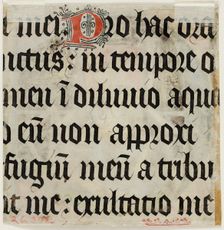 i mei. Pro hac ora
nctus: in tempore o
men ī diluuio aqu
d eū non approxi
fugiū meū a tribu
it me: exultatio me